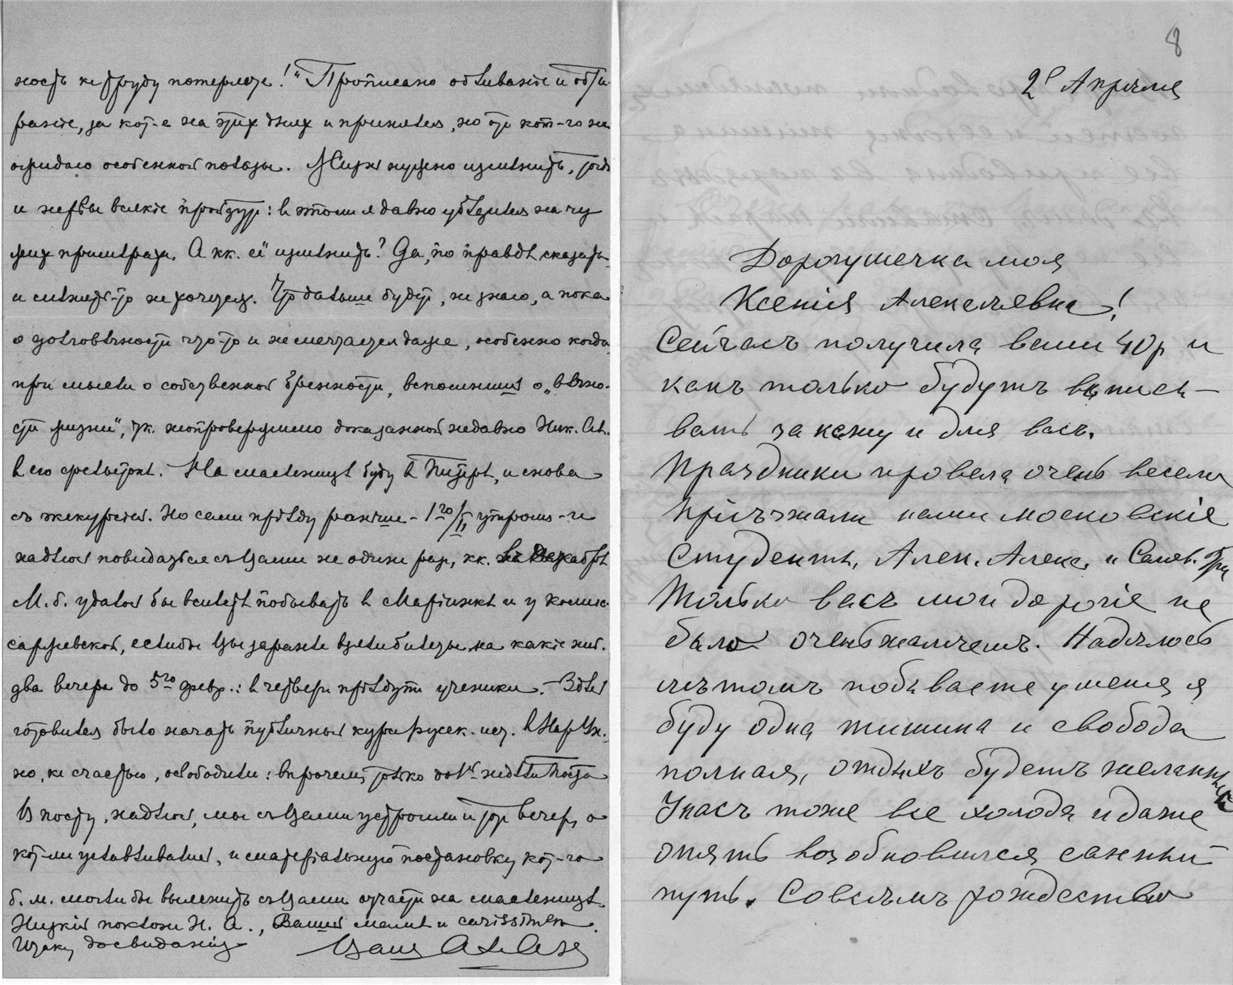 ность къ труду потерлѣе!" Прописано обливаніе и обти-
раніе, за кот-е на этихъ дняхъ и принялся, но отъ кот-го не
ожидаю особенной пользы. Жизнь нужно измѣнить, тогда
и нервы всякіе пройдутъ: въ этомъ я давно убѣдился на чу-
жихъ примѣрахъ. А кк. её измѣнить? Да, по правдѣ сказать,
и мѣнять-то не хочется. Что дальше будетъ, не знаю, а пока
о долговѣчности что-то и не мечтается даже, особенно когда,
при мысли о собственной бренности, вспомнишь о „вѣчно-
сти жизни", тк. неопровержимо доказанной недавно Ник. Ал.
въ его
На масленицѣ буду въ Питерѣ, и снова
съ экскурсіей. Но самъ пріѣду раньше – 1го/II утромъ – и
надѣюсь повидаться съ Вами не одинъ разъ, кк. въ декабрѣ
М. б. удалось бы вмѣстѣ побывать въ Маріинкѣ и у Комис-
саржевской, если бы Вы заранѣе взяли билеты на какіе ниб.
два вечера до 5го февр.: въ четвергъ пріѣдутъ ученики. Здѣсь
готовился было начать публичный курсъ русск. ист. въ Нар. Ун.
но, къ счастью, освободили: впрочемъ, только до 1й недѣли поста
Въ посту, надѣюсь, мы съ Вами устроимъ и тотъ вечеръ, о
кот-мъ уславливались, и матеріальную постановку кот-го
б. м. могли бы выяснить съ Вами отчасти на масленицѣ
Низкій поклонъ Н. А., Вашей мамѣ и carissimae.
Итакъ, до свиданія Вашъ
8
2е Апрѣля
Дорогушечка моя
Ксенія Алексѣевна!
Сейчасъ получила ваши 40р и
какъ только будутъ выписы-
вать закажу и для васъ.
Праздники провела очень весело
Пріѣзжали наши московскіе
Студенты, Алек. Алекс. и
Только васъ мои дорогіе не
было очень жалѣемъ. Надѣюсь
лѣтомъ побываете у меня я
буду одна тишина и свобода
полная, отдыхъ будетъ желанный
У насъ тоже все холода и даже
опять возобновился санный
путь. Совсѣмъ рождество